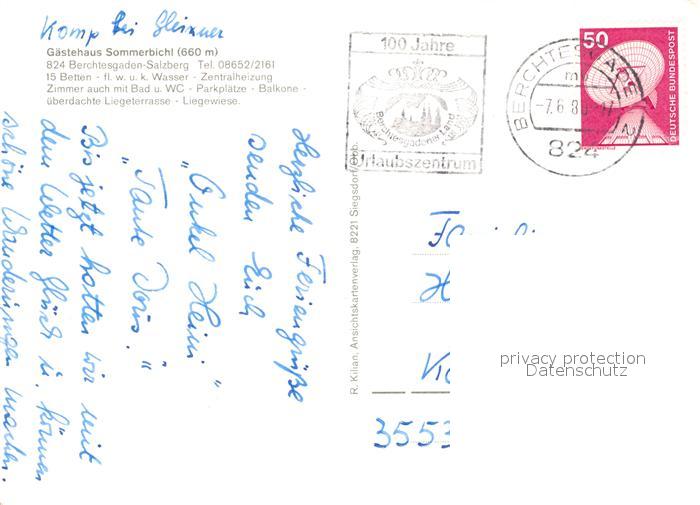 Komp bei Gleixner
Gästehaus Sommerbichl (660 m)
824 Berchtesgaden-Salzberg Tel. 08652/2161
15 Betten - fl. w. u. k. Wasser - Zentralheizung
Zimmer auch mit Bad u. WC - Parkplätze - Balkone -
überdachte Liegeterrasse - Liegewiese.
Herzliche Feriengrüße
senden Euch
"Onkel Heini"
"Tante Doris."
Bis jetzt hatten wir mit
dem Wetter Glück u. können
schöne Wanderungen machen.
R. Kilian, Ansichtskartenverlag, 8221 Siegsdorf/Obb.
100 Jahre
Berchtesgadener Land
Urlaubszentrum
BERCHTESGADEN 2
-7.6.80
824
50
DEUTSCHE BUNDESPOST
H
3553
privacy protection
Datenschutz